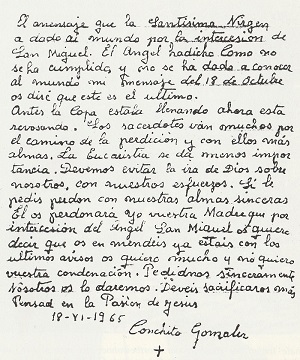 El mensaje que la Santísima Virgen
a dado al mundo por la intercesión de
San Miguel. El Angel ha dicho Como no
se ha cumplido, y no se ha dado a conocer
al mundo mi mensaje del 18 de Octubre
os diré que este es el ultimo.
Antes la Copa estaba llenando ahora esta
revosando. Los sacerdotes van muchos por
el camino de la perdición y con ellos más
almas. La Eucaristia se dá menos impor
tancia. Devemos evitar la ira de Dios sobre
nosotros, con nuestros esfuerzos. Si le
pedis perdon con nuestras almas sinceras
El os perdonará yo vuestra Madre que por
intercesión del Angel San Miguel os quiere
decir que os enmendéis ya estais con los
ultimos avisos os quiero mucho y no quiero
vuestra condenación. Pedidnos sinceramente
Nosotros os lo daremos. Deveis sacrificaros más
Pensad en la Pasión de Jesús
18-VI-1965
Conchita Gonzalez